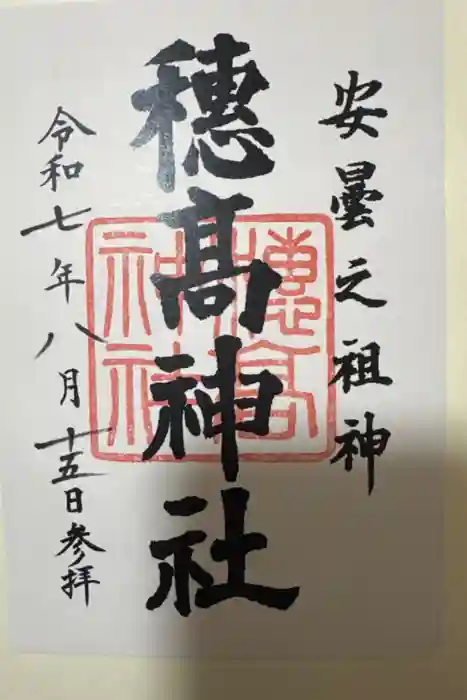 安曇之祖神
穂髙神社
穂高神社
令和七年八月十五日参拝